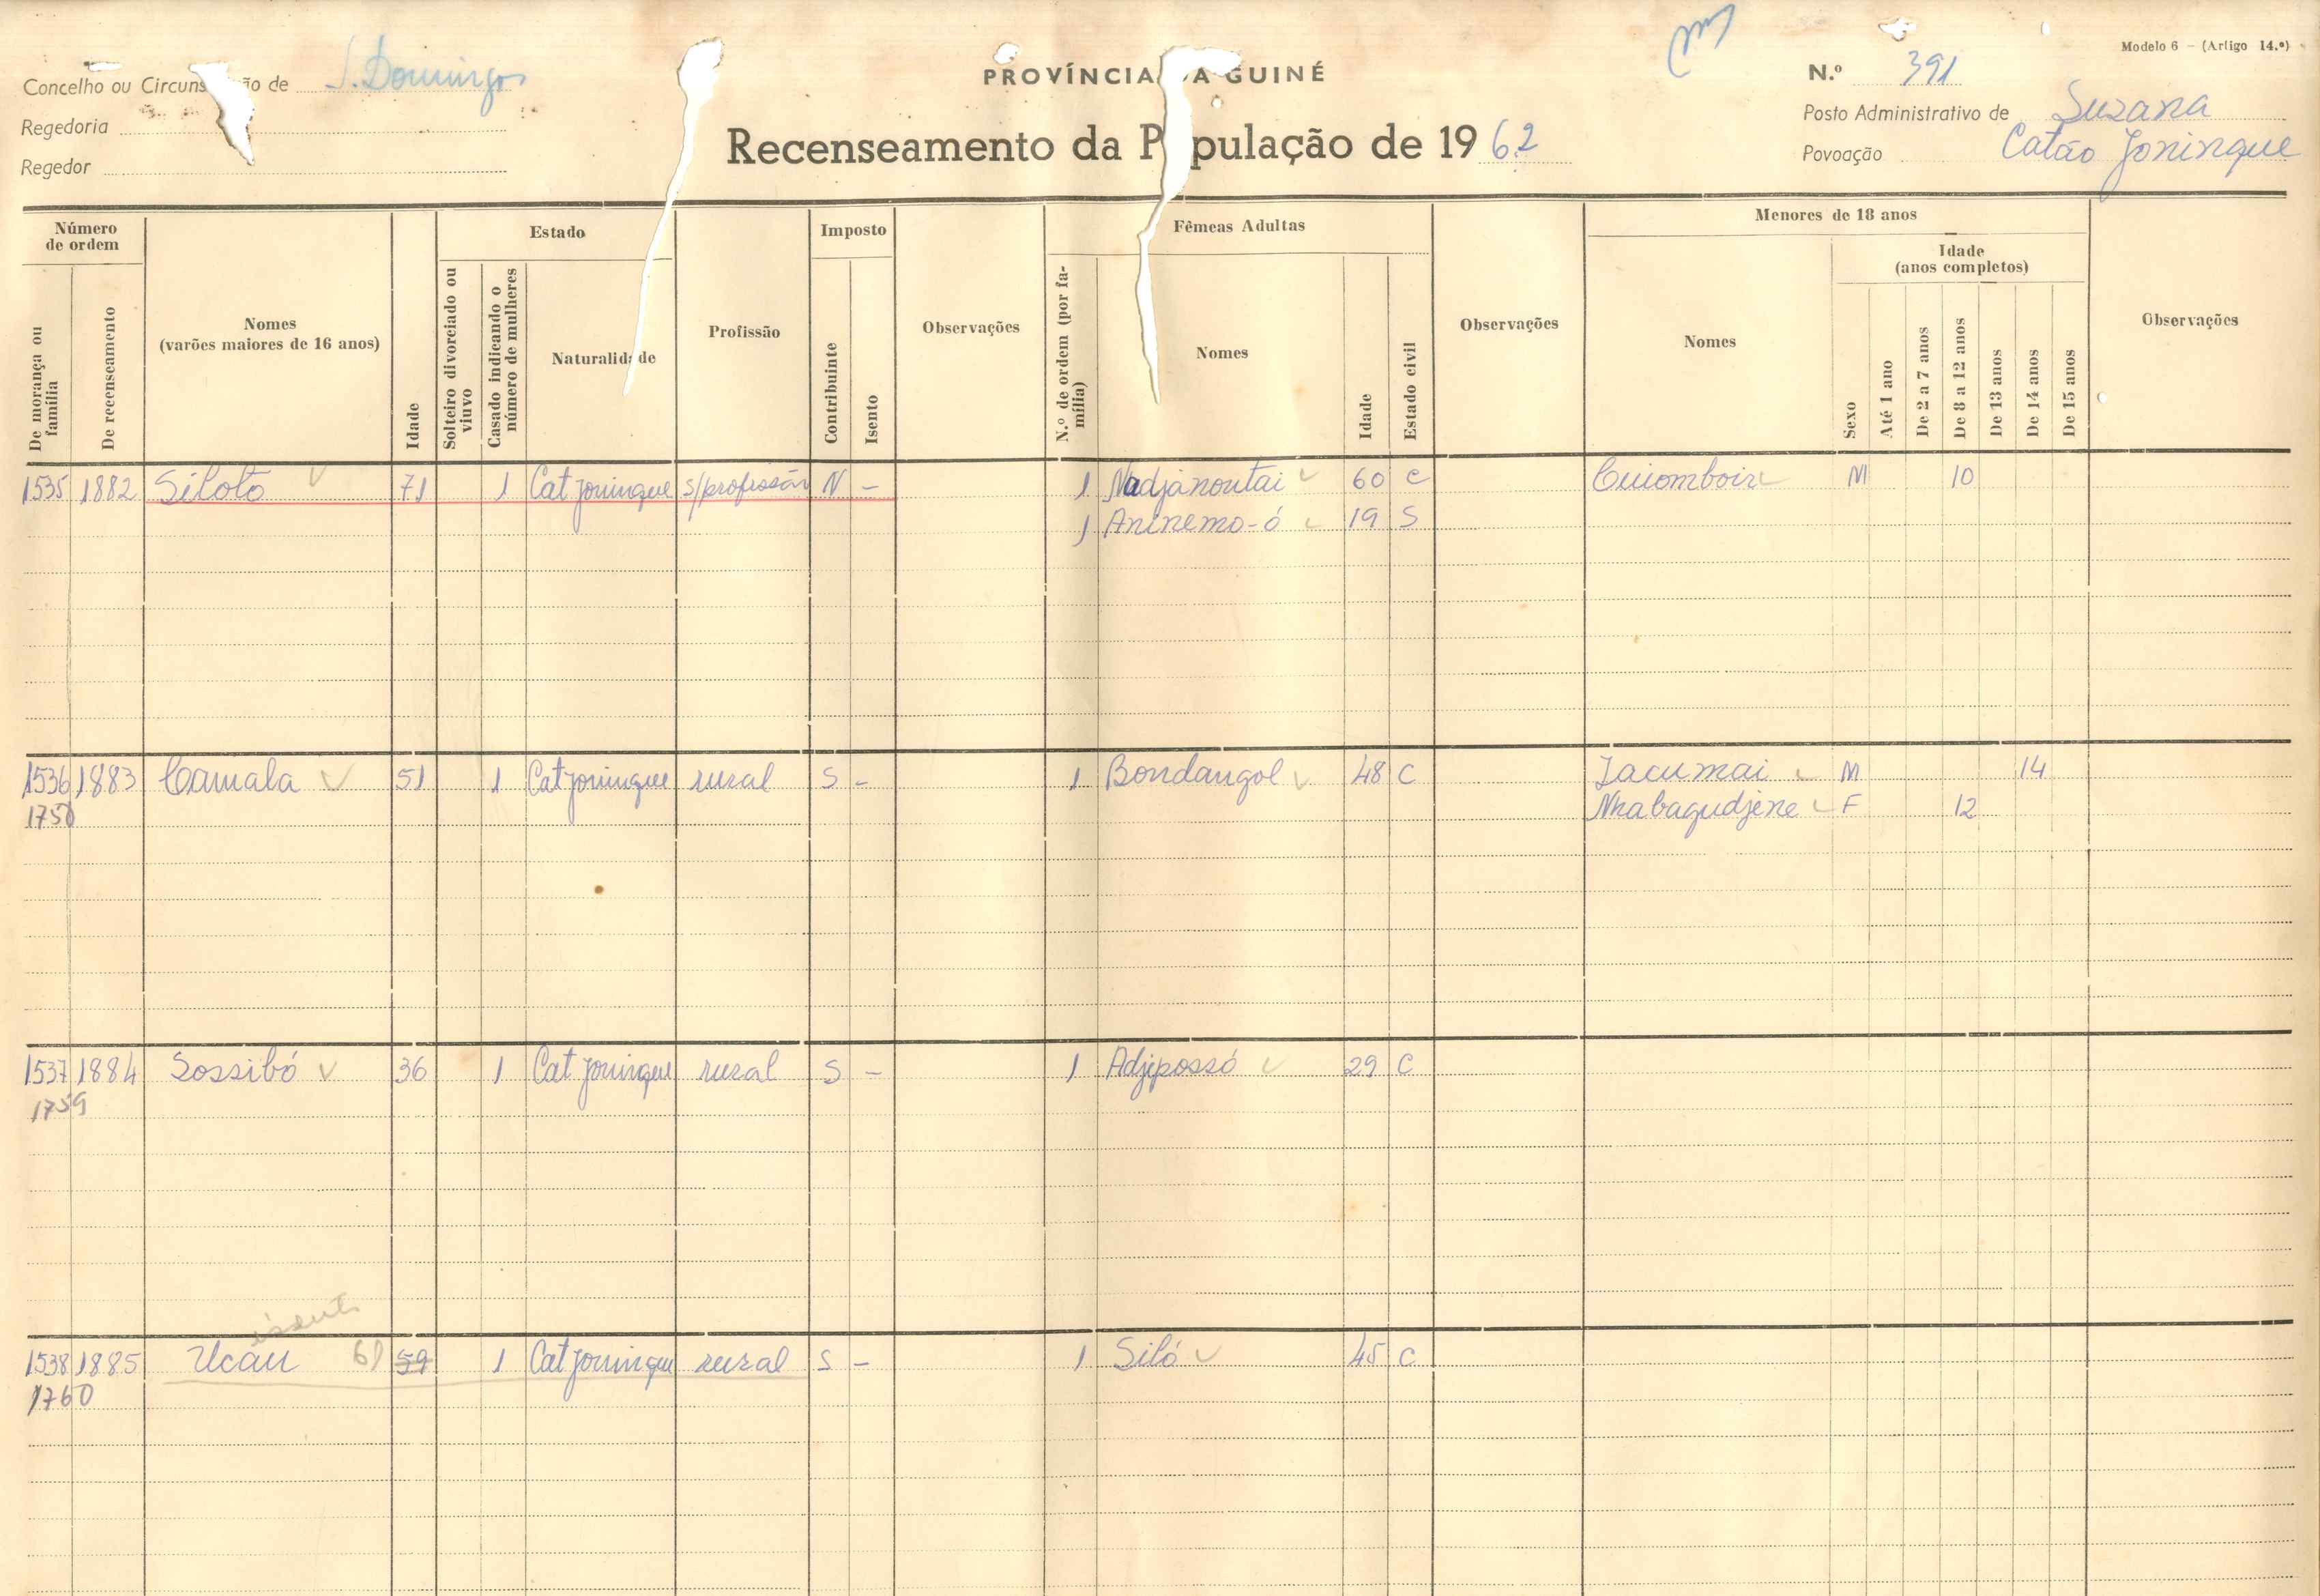 Modelo 6 — (Artigo 14.º)
Concelho ou Circuns ão de S. Domingos
PROVÍNCIA DA GUINÉ
N.º 391
Regedoria
Recenseamento da P pulação de 1962
Posto Administrativo de Suzana
Regedor
Povoação Catão Joningue
Número de ordem
Estado
Imposto
Fêmeas Adultas
Menores de 18 anos
Idade (anos completos)
De morança ou família
De recenseamento
Nomes (varões maiores de 16 anos)
Idade
Solteiro divorciado ou viuvo
Casado indicando o número de mulheres
Naturalidade
Profissão
Contribuinte
Isento
Observações
N.º de ordem (por família)
Nomes
Idade
Estado civil
Observações
Nomes
Sexo
Até 1 ano
De 2 a 7 anos
De 8 a 12 anos
De 13 anos
De 14 anos
De 15 anos
Observações
1535 1882 Siloto 71 1 Cat joningue s/profissão N - 1 Nadjanoutai 60 C Cuiomboin M 10
1 Aninemo-ó 19 S
1536 1883 Camala 51 1 Cat joningue rural S - 1 Bondangol 48 C Jacumai M 14
1758 Nhabagudjene F 12
1537 1884 Sossibó 36 1 Cat joningue rural S - 1 Adjipossó 29 C
1759
isento
1538 1885 Ucau 61 59 1 Cat joningue rural S - 1 Siló 45 C
1760